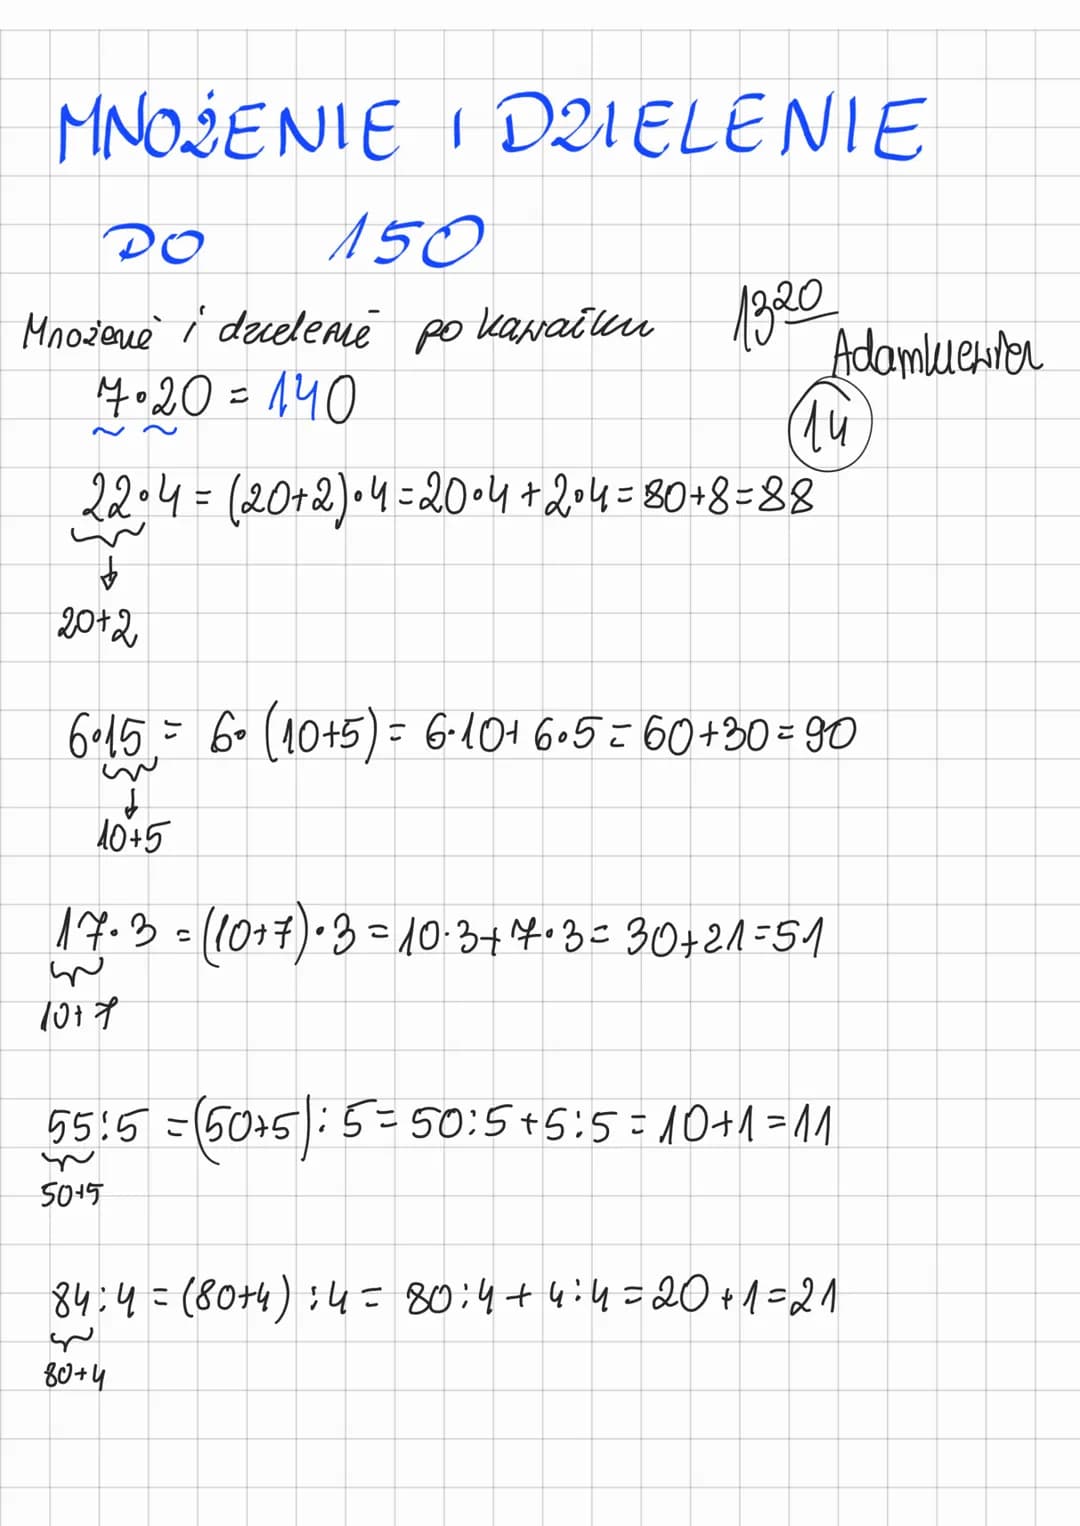 MNOŻENIE I DZIELENIE
DO 150
Mnożenie i dzielenie po kawałku
13 20
Adamkiewicz
7·20 = 140
14
22·4 = (20+2)·4 = 20·4 + 2·4 = 80+8 = 88
20+2
6·15 = 6· (10+5) = 6·10 + 6·5 = 60+30 = 90
10+5
17·3 = (10+7)·3 = 10·3 + 7·3 = 30+21 = 51
10+7
55:5 = (50+5) : 5 = 50:5 + 5:5 = 10+1 = 11
50+5
84:4 = (80+4) :4 = 80:4 + 4:4 = 20+1 = 21
80+4